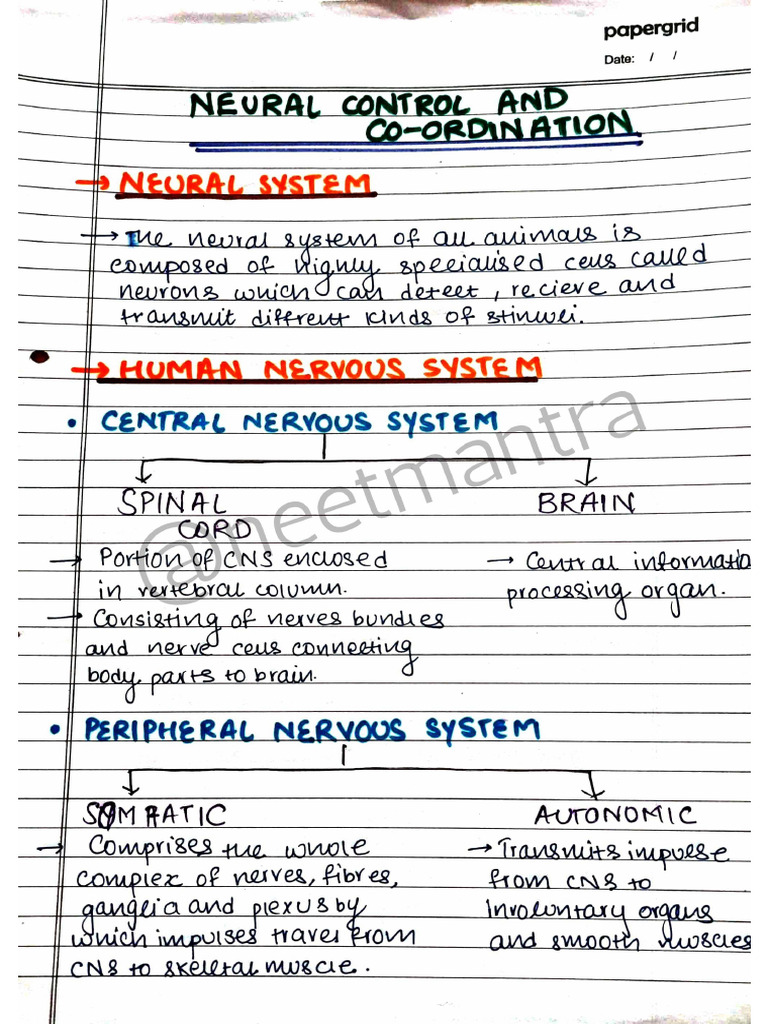 papergrid
Date: / /
NEURAL CONTROL AND
CO-ORDINATION
→ NEURAL SYSTEM
→ The neural system of all animals is
composed of highly specialised cells called
neurons which can detect, recieve and
transmit diffrent kinds of stimuli.
→ HUMAN NERVOUS SYSTEM
• CENTRAL NERVOUS SYSTEM
SPINAL CORD
BRAIN
→ Portion of CNS enclosed
in vertebral column.
→ Consisting of nerves bundles
and nerve cells connecting
body parts to brain.
→ Central informatio
processing organ.
@neetmantra
• PERIPHERAL NERVOUS SYSTEM
SOMATIC
AUTONOMIC
→ Comprises the whole
complex of nerves, fibres,
ganglia and plexus by
which impulses travel from
CNS to skeletal muscle.
→ Transmits impulse
from CNS to
involuntary organs
and smooth muscles